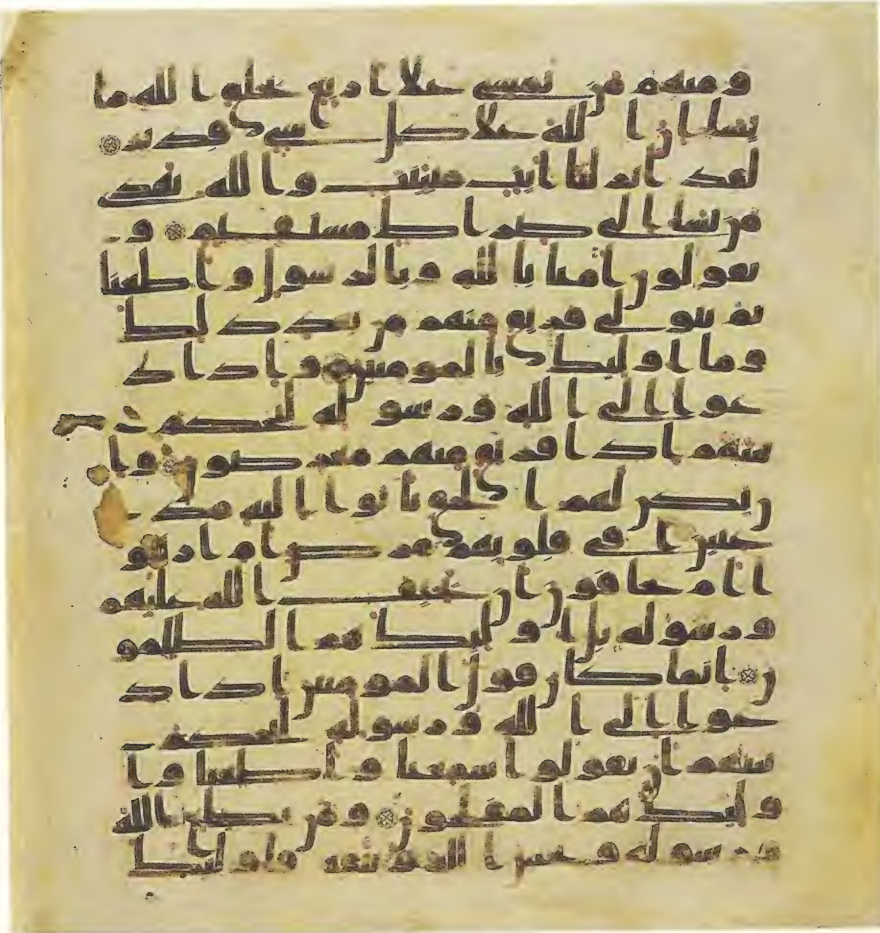 ومنهم من يمشى على اربع يخلق الله ما
يشا ان الله على كل شى قدير
لقد انزلنا ايت مبينت والله يهدى
من يشا الى صراط مستقيم و
يقولون امنا بالله وبالرسول واطعنا
ثم يتولى فريق منهم من بعد ذلك
وما اوليك بالمومنين واذا د
عوا الى الله ورسوله ليحكم بـ
ينهم اذا فريق منهم معرضون وا
ن يكن لهم الحق ياتوا اليه مذ
عنين افى قلوبهم مرض ام ارتابو
ا ام يخافون ان يحيف الله عليهم
ورسوله بل اوليك هم الظلمو
ن انما كان قول المومنين اذا د
عوا الى الله ورسوله ليحكم بـ
ينهم ان يقولوا سمعنا واطعنا وا
وليك هم المفلحون ومن يطع الله
ورسوله ويخش الله ويتقه فاوليك